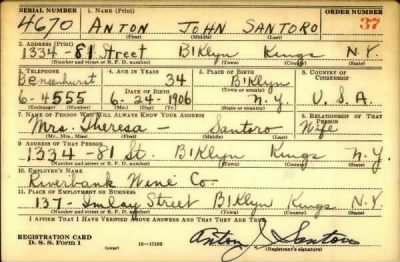 SERIAL NUMBER 1. NAME (Print) ORDER NUMBER
4670 ANTON JOHN SANTORO 37
(First) (Middle) (Last)
2. ADDRESS (Print)
1334 - 81 Street B'Klyn Kings N.Y.
(Number and street or R. F. D. number) (Town) (County) (State)
3. TELEPHONE 4. AGE IN YEARS 5. PLACE OF BIRTH 6. COUNTRY OF CITIZENSHIP
Bensonhurst 34 B'Klyn
(Town or county)
6-4555 6-24-1906 N.Y. U.S.A.
(Exchange) (Number) (Mo.) (Day) (Yr.) (State or country)
7. NAME OF PERSON WHO WILL ALWAYS KNOW YOUR ADDRESS 8. RELATIONSHIP OF THAT PERSON
Mrs. Theresa - Santoro Wife
(Mr., Mrs., Miss) (First) (Middle) (Last)
9. ADDRESS OF THAT PERSON
1334 81 St. B'Klyn Kings N.Y.
(Number and street or R. F. D. number) (Town) (County) (State)
10. EMPLOYER'S NAME
Riverbank Wine Co.
11. PLACE OF EMPLOYMENT OR BUSINESS
137 - Imlay Street B'Klyn Kings N.Y.
(Number and street or R. F. D. number) (Town) (County) (State)
I AFFIRM THAT I HAVE VERIFIED ABOVE ANSWERS AND THAT THEY ARE TRUE.
REGISTRATION CARD
D. S. S. Form 1 16-17105 Anton J. Santoro
(Registrant's signature)